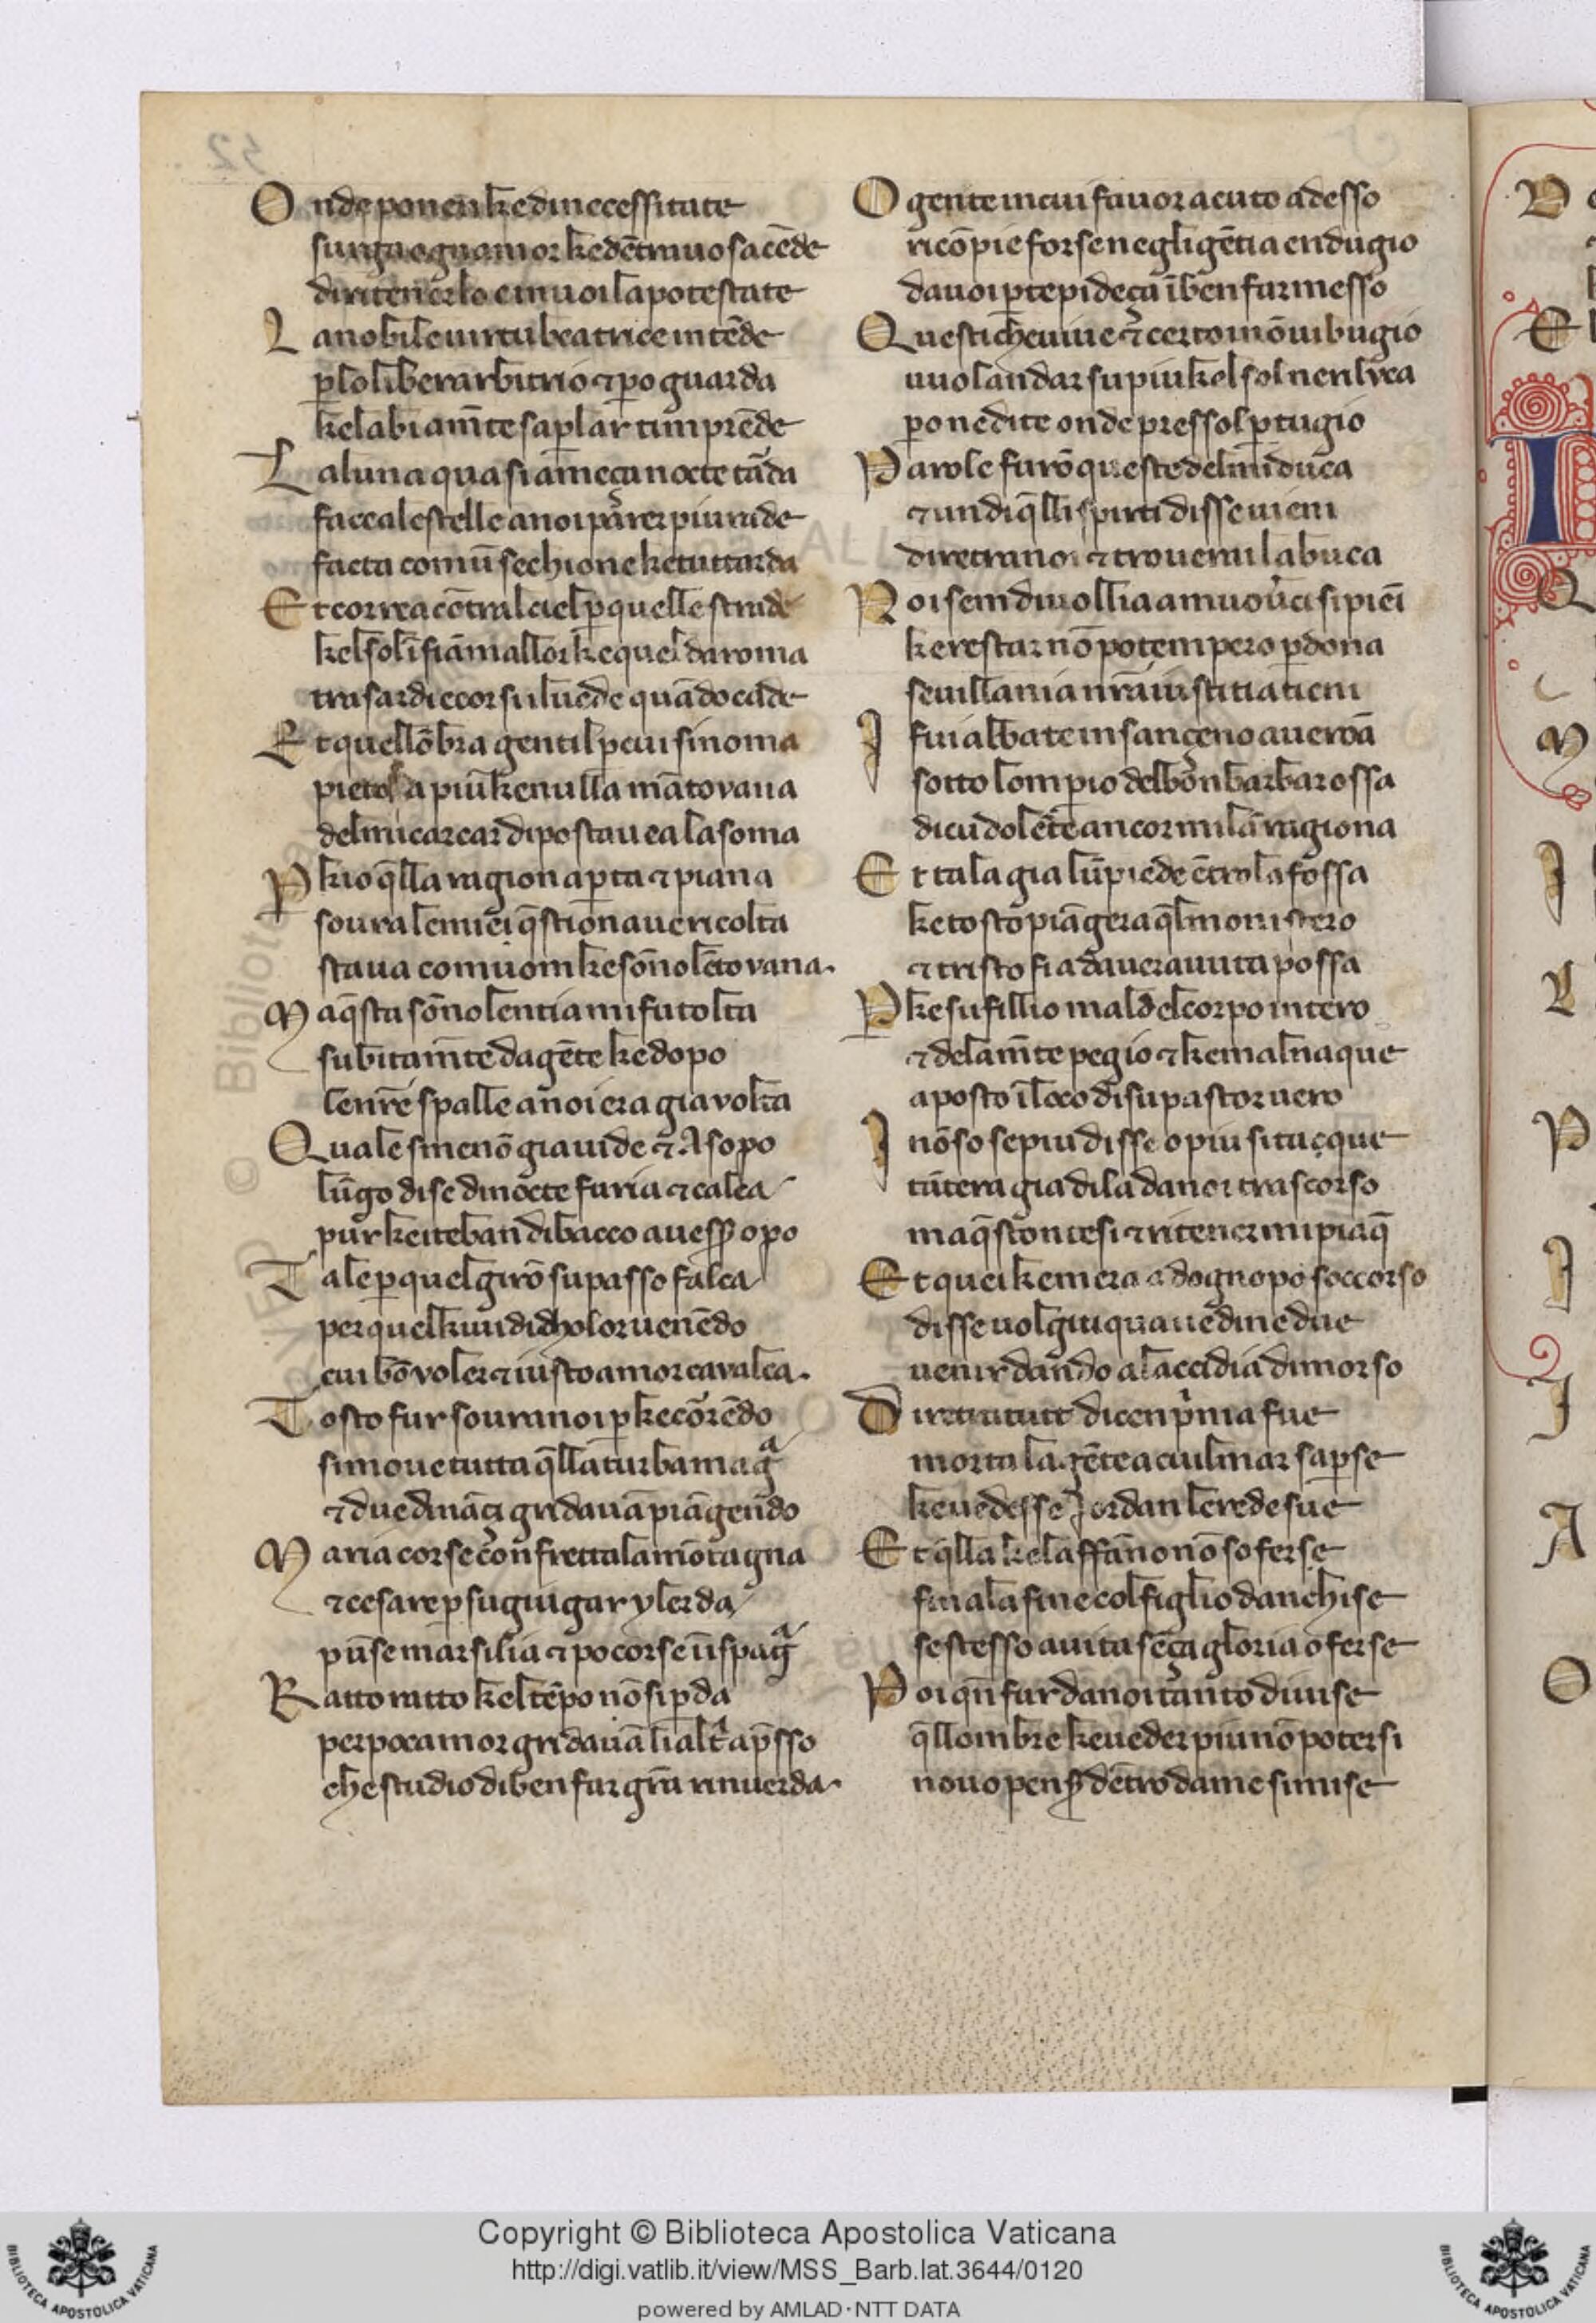 O nde ponen ke di necessitate
surga ogn amor ke dēt'a uo sacēde
di ritenerlo e in uoi la potestate
L a nobile uirtu beatrice intēde
ꝑ lo libero arbitrio ⁊ ꝑo guarda
ke labi a mt̄e sa ꝑlar tin prēde
L a luna quasi a meça nocte tarda
facea le stelle a noi parer piu rade
facta comū sechione ke tuttarda
E t correa cōtral ciel ꝑ quelle strade
kel sol īfiāma allor ke quel da roma
tra sardi e corsi luede quādo cade
E t quellōbra gentil ꝑ cui si noma
pietola piu ke nulla mātovana
del mi carcar diposta uea la soma
P kio q̄lla ragion aꝑta ⁊ piana
soura le mie q̄stion aue ricolta
staua com uom ke sōnolēto vana.
M a q̄sta sōnolentia mi fu tolta
subitamt̄e da gēte ke dopo
le nr̄e spalle a noi era gia volta
Q uale smeno gia uide ⁊ Asopo
lūgo di se di nocte furia ⁊ calca
pur ke i teban di bacco auesser opo
T ale ꝑ quel giro suo passo falca
per quel kiuidi di choloro uenēdo
cui bō voler ⁊ iusto amor cavalca.
T osto fur soura noi ꝑke corrēdo
si moue tutta q̄lla turba magª
⁊ due dināçi gridauā piāgendo
M aria corse con fretta la mōtagna
⁊ cesare ꝑ suguigar ylerda
pūse marsilia ⁊ po corse ī spagª
R atto ratto kel tēpo nō si ꝑda
per poco amor gridauā li altri aꝑsso
che studio di ben far grā rinuerda.
O gente in cui fauor acuto adesso
ricōpie forse negligētia e ndugio
da uoi ꝑ tepideça ī ben far messo
Q uesti che uiue ⁊ certo inō ui bugio
uuol andar su piu kel sol ne rilvca
ꝑo ne dite onde presso l ꝑtugio
P arole furō queste del mi duca
⁊ un di q̄lli spirti disse uieni
diretra noi ⁊ troverai la buca
N oi sem di uollia a muouerci si pieī
ke restar nō potem pero ꝑdona
se uillania nr̄a iustitia tieni
I fui abbate in san çeno a uerōa
sotto lomꝑio del bon barbarossa
di cu dolēte ancor mila ragiona
E t tal a gia lū piede ētro la fossa
ke tosto piāgera q̄l monistero
⁊ tristo fia dauer auuta possa
P ke su fillio mal del corpo intero
⁊ de la mt̄e pegio ⁊ ke mal naque
a posto ī loco di su pastor uero
I nō so se piu disse o piu si tacque
tātera gia di la da noi trascorso
ma q̄sto ntesi ⁊ ritener mi piaq̄
E t quei ke mera ad ogn opo soccorso
disse uolgiti qua uedine due
uenir dando a laccidia di morso
D iretra tutti dicen prima fue
morta la gēte a cui l mar saꝑse
ke uedesse Jordan le rede sue
E t q̄lla ke laffāno nō soferse
fin a la fine col figlio danchise
se stesso a uita sēça gloria oferse
P oi qn̄ fur da noi tanto diuise
q̄llombre ke ueder piu nō potersi
nouo penser dētro da me si mise
Copyright © Biblioteca Apostolica Vaticana
http://digi.vatlib.it/view/MSS_Barb.lat.3644/0120
powered by AMLAD·NTT DATA